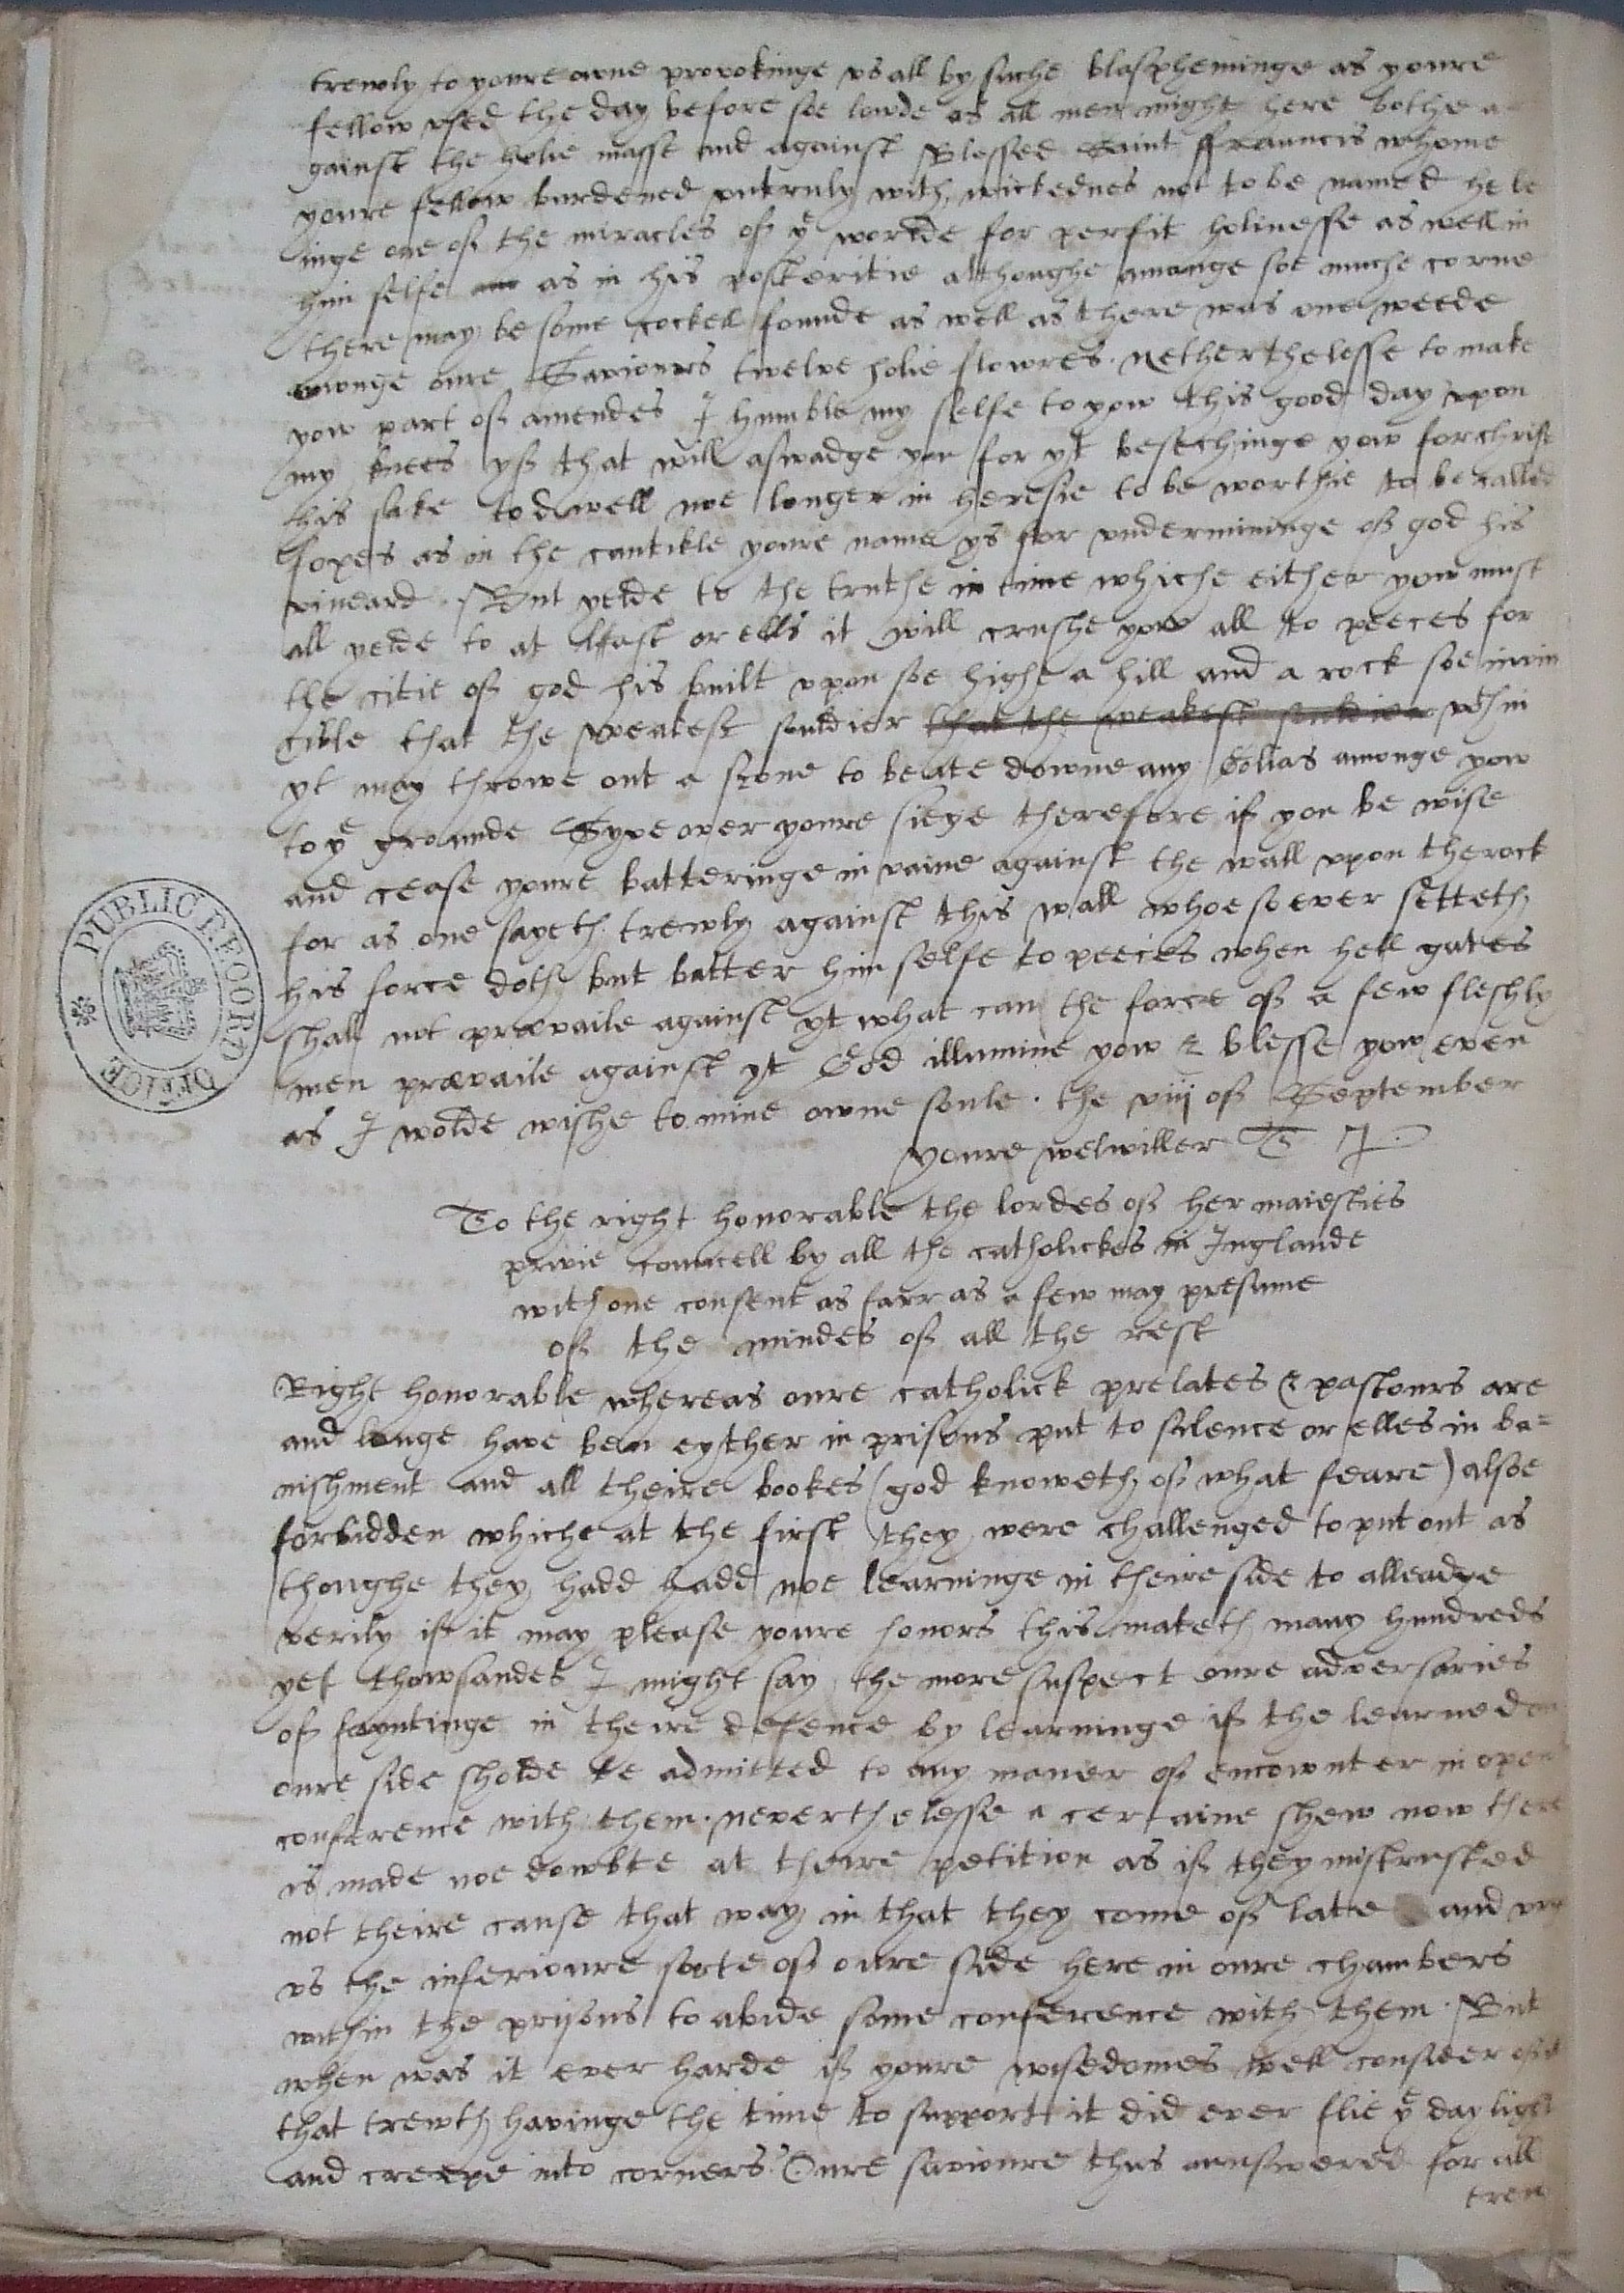 trewly to youre owne provokinge vs all by suche blaspheminge as youre
fellow vsed the day before soe lowde as all men might here bothe a
gainst the holie masse and against Blessed Saint ffrauncis whome
youre fellow burdened vntruly with wickednes not to be named he be
inge one of the miracles of ye worlde for perfit holinesse as well in
him selfe as in his posteritie althoughe amonge soe muche corne
there may be some cockell founde as well as there was one weede
amonge oure Saviours twelve holie flowres. Netherthelesse to make
yow part of amendes I humble my selfe to yow this good day vpon
my knees yf that will aswadge yow for yt besechinge yow for christ
his sake to dwell noe longer in heresie to be worthie to be called
foxes as in the canticle youre name ys for vndermininge of god his
vineard. But yelde to the truthe in time whiche either yow must
all yelde to at last or ells it will crushe yow all to peeces for
the citie of god his built vpon soe highe a hill and a rock soe invin
cible that the weakest souldier that the weakest souldier wthin
yt may throwe out a stone to beate downe any Golias amonge yow
to ye grounde Gyve over youre siege therefore if you be wise
and cease youre batteringe in vaine against the wall vpon the rock
for as one sayeth trewly against this wall whoesoever setteth
his force doth but batter him selfe to peeces when hell gates
shall not prævaile against yt what can the force of a few fleshly
men prævaile against yt God illumine yow & blesse yow even
as I wolde wishe to mine owne soule. the viij of September
youre welwiller T P
To the right honorable the lordes of her maiesties
privie councell by all the catholickes in Inglande
with one consent as farr as a few may presume
of the mindes of all the rest
Right honorable whereas oure catholick prelates & pastours are
and longe have ben eyther in prisons put to silence or elles in ba=
nishment and all theire bookes (god knoweth of what feare) alsoe
forbidden whiche at the first they were challenged to put out as
thoughe they hadd hadd noe learninge in theire side to alleadge
verily if it may please youre honors this maketh many hundreds
yet thowsandes I might say the more suspect oure adversaries
of fayntinge in theire defence by learninge if the learned on
oure side sholde be admitted to any maner of encownter in open
conference with them. neverthelesse a certaine shew now there
is made noe dowbte at theire petition as if they mistrusted
not theire cause that way in that they come of late and
vs the inferioure sorte of oure side here in oure chambers
within the prisons to abide some conference with them. But
when was it ever harde if youre wisedomes well consider of it
that trewth havinge the time to support it did ever flie ye day light
and creepe into corners. Oure saviour thus aunswered for all
trew
PUBLIC RECORD OFFICE